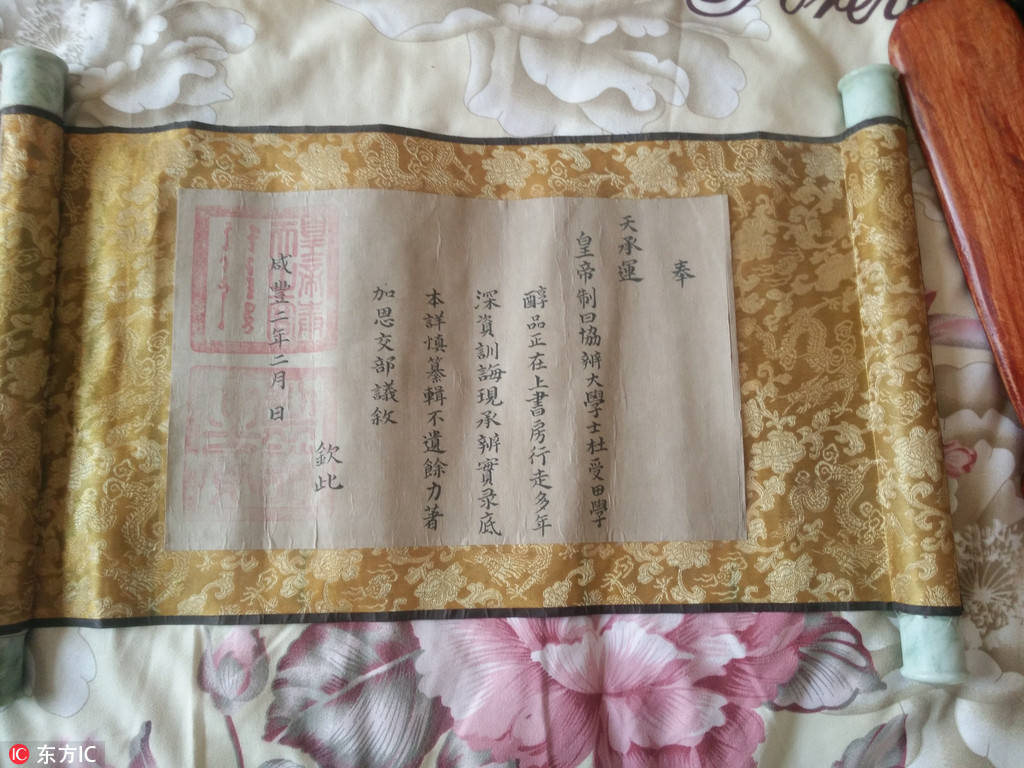 奉
天承運
皇帝制曰協辦大學士杜受田學
醇品正在上書房行走多年
深資訓誨現承辦實录底
本詳慎纂輯不遺餘力著
加恩交部議敘
欽此
咸豐二年二月 日
东方IC